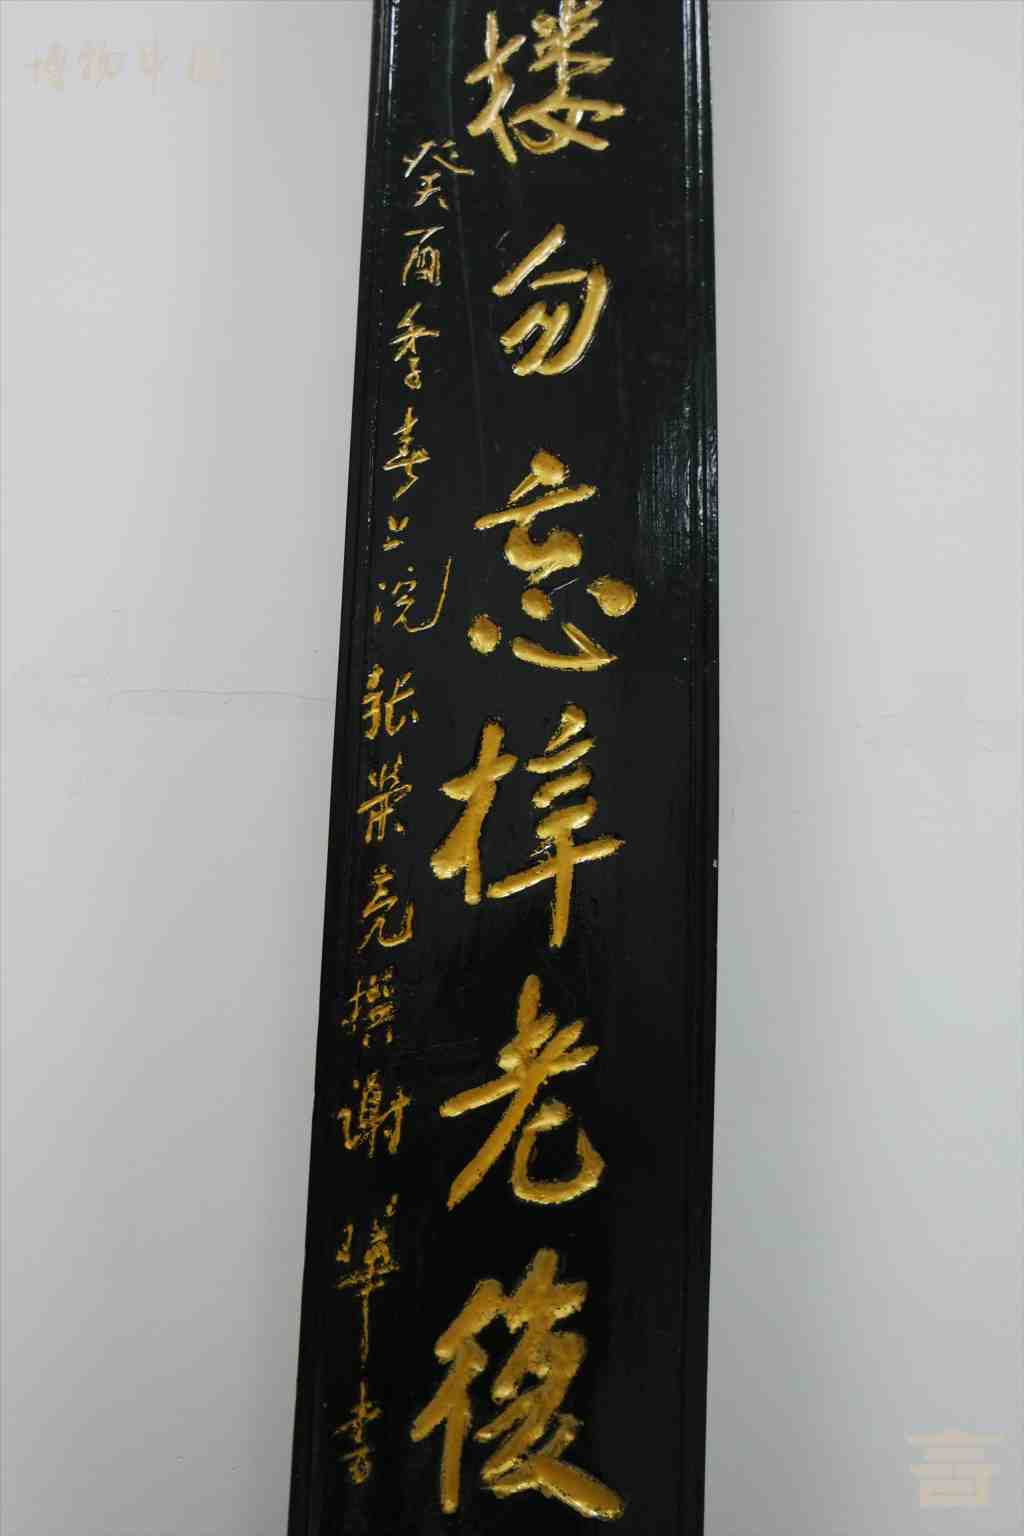 楼勿忘梓老後
癸酉季春上浣張榮亮撰謝曄書
博物中国